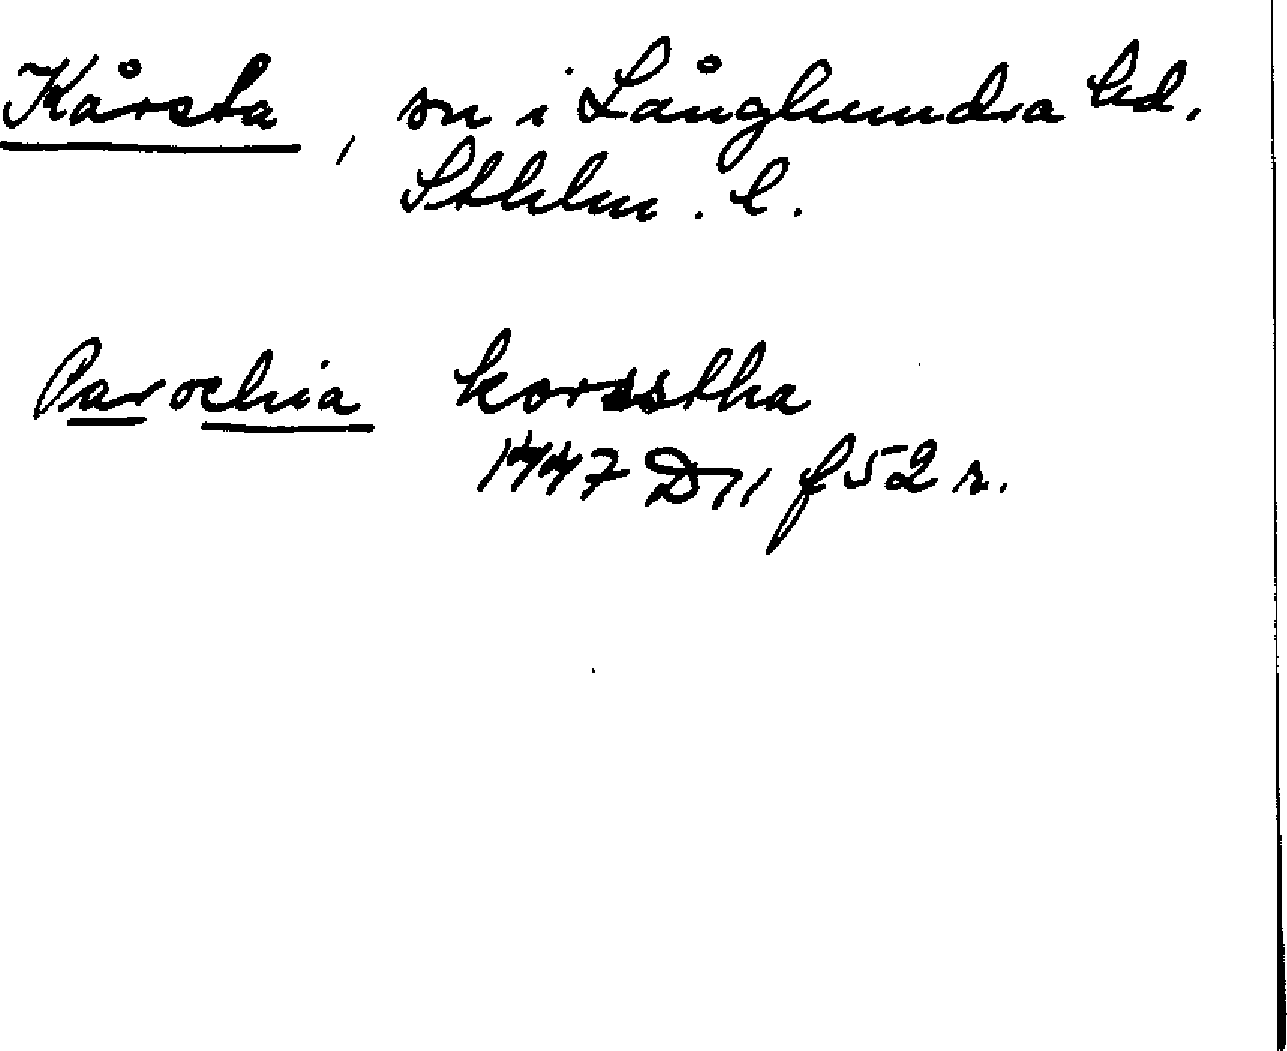 Kårsta, sn i Långhundra hd.
Sthlm. l.
Parochia korsstha
1447 D11 f 52 r.